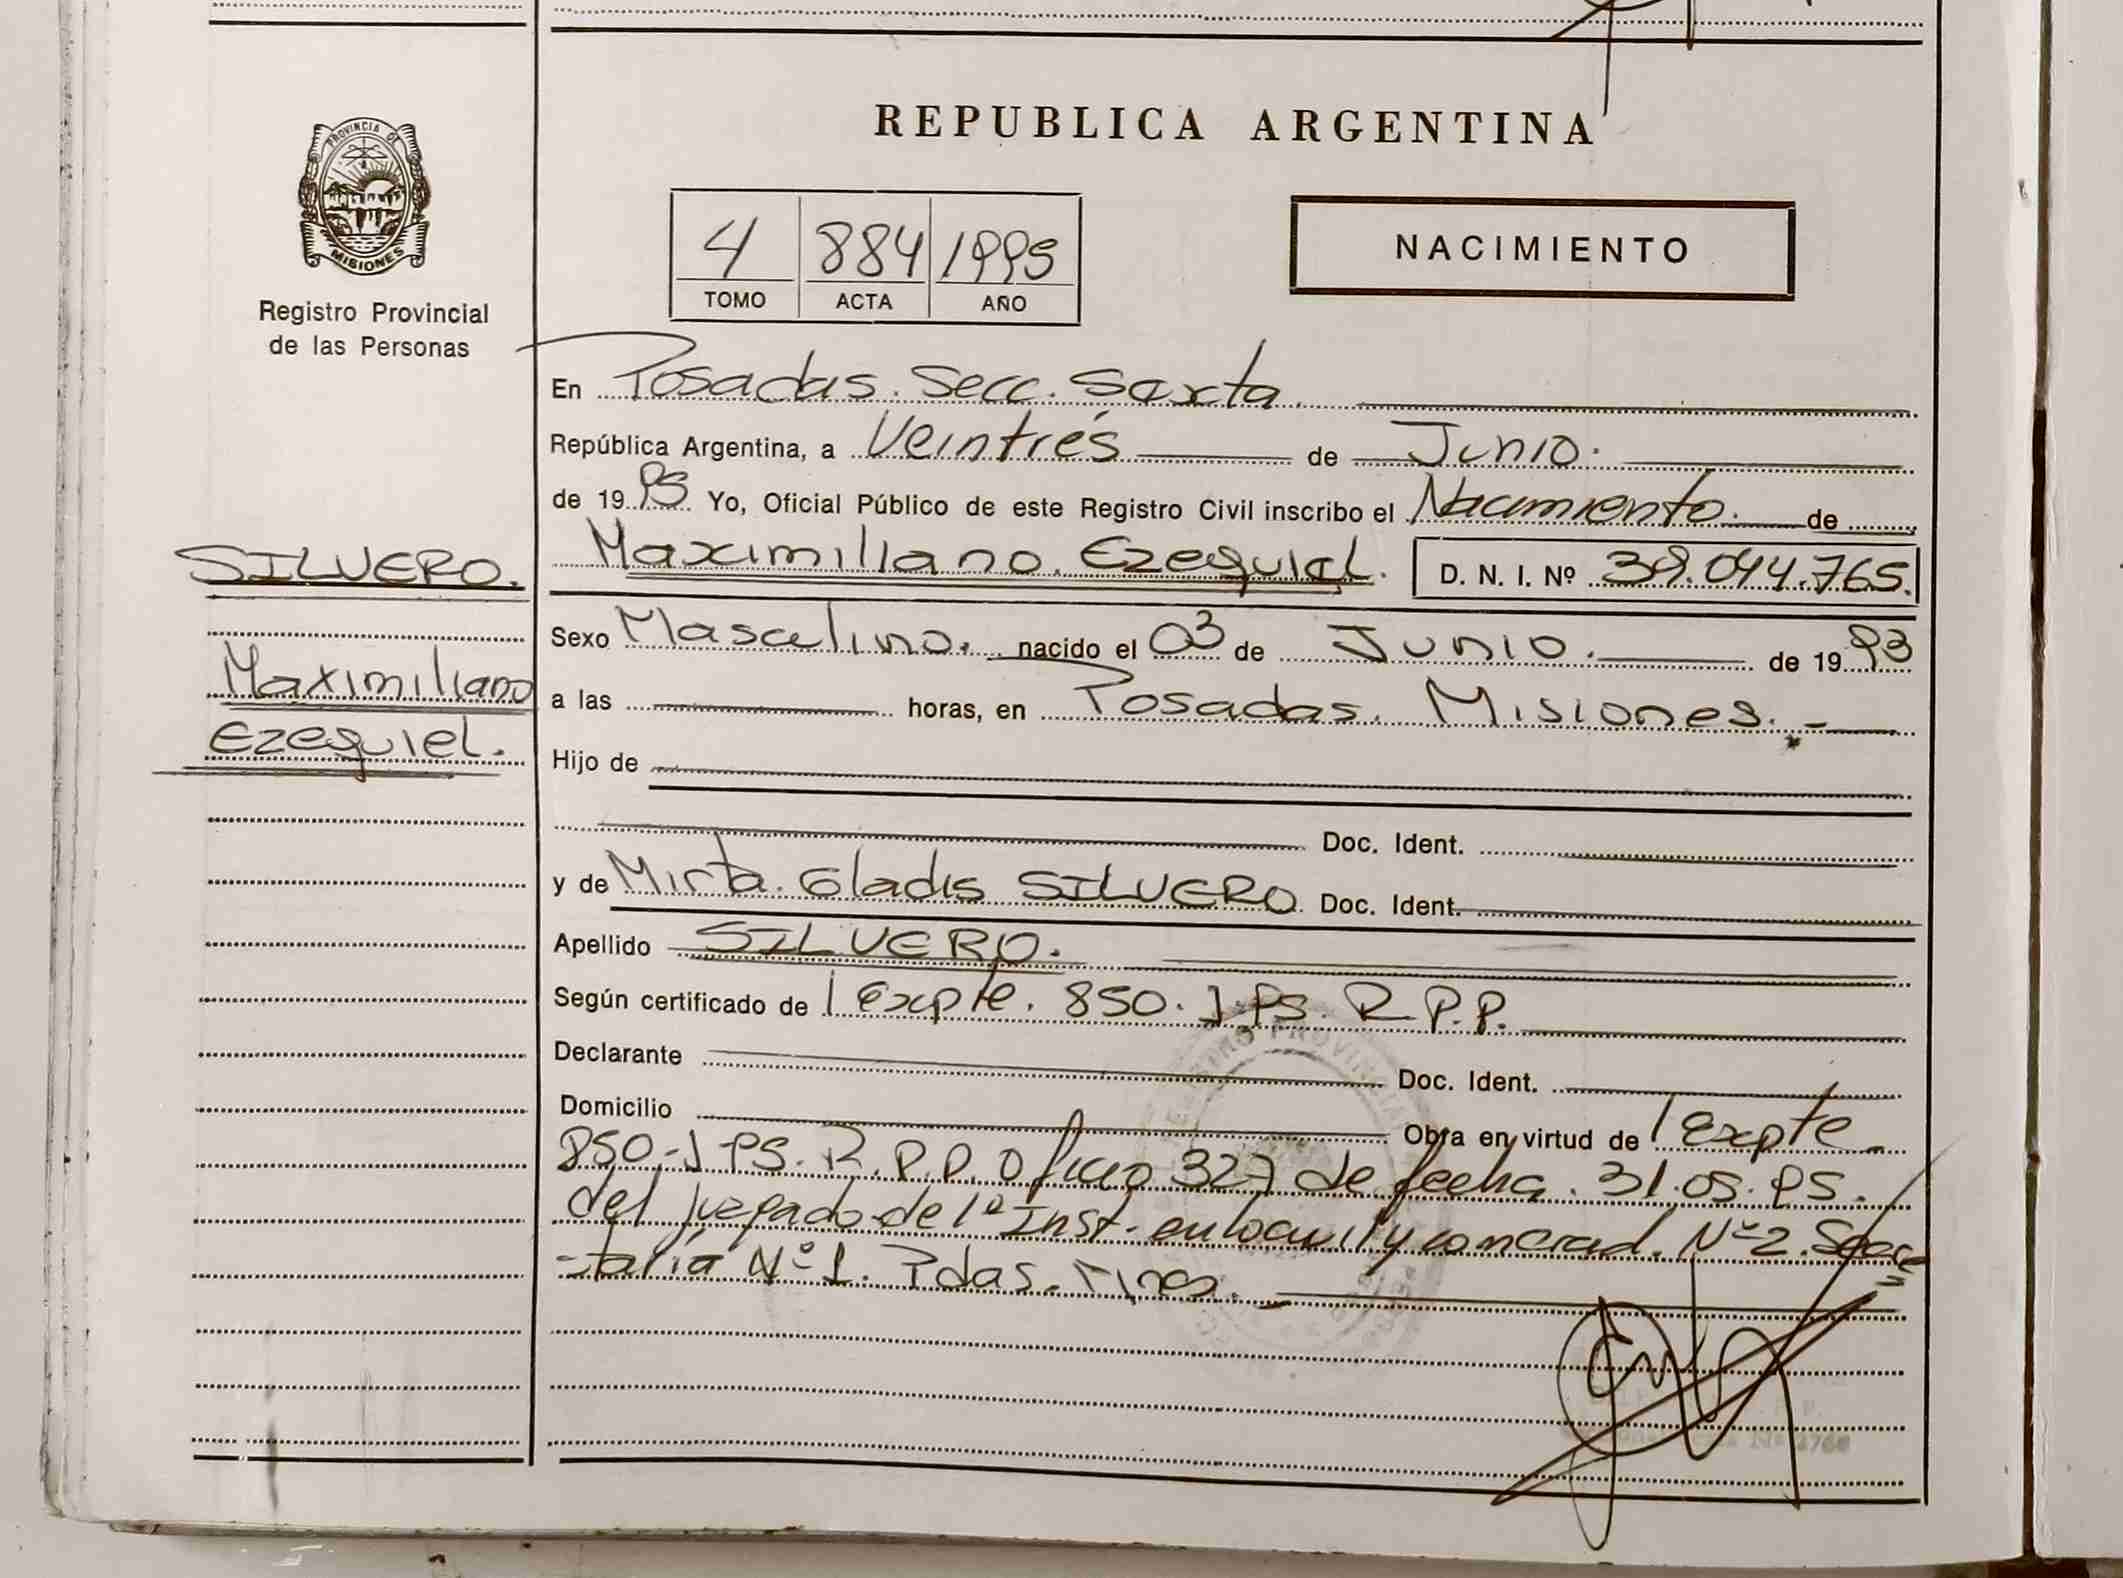 PROVINCIA DE
MISIONES
Registro Provincial
de las Personas
SILVERO.
Maximiliano
Ezequiel.
REPUBLICA ARGENTINA
4 884 1995
TOMO ACTA AÑO
NACIMIENTO
En Posadas. Secc. Sexta.
República Argentina, a Veintrés de Junio.
de 1995 Yo, Oficial Público de este Registro Civil inscribo el Nacimiento. de
Maximiliano. Ezequiel. D. N. I. Nº 39.044.765.
Sexo Masculino. nacido el 03 de Junio. de 1993
a las horas, en Posadas. Misiones.
Hijo de
Doc. Ident.
y de Mirta. Gladis SILVERO. Doc. Ident.
Apellido SILVERO.
Según certificado de Expte. 850. J-95. R.P.P.
Declarante Doc. Ident.
Domicilio Obra en virtud de Expte
850-J-95. R.P.P. Oficio 327 de fecha. 31.05.95.
del juzgado de 1ª Inst. en lo civil y comercial. Nº 2. Secre
-taria Nº 1. Pdas.
REGISTRO PROVINCIAL